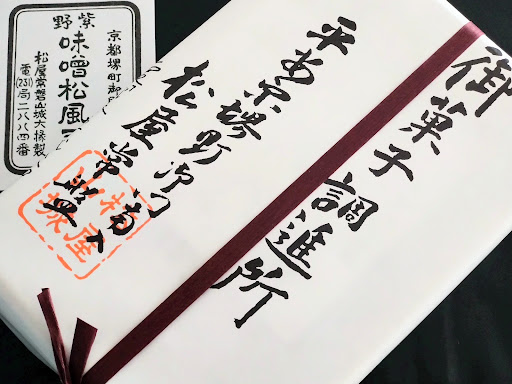 御菓子調進所
平安京堺町御門南入
松屋常盤
京都堺町御
紫野
味噌松風
松屋常磐山城大掾製
電(231)局二八八四番